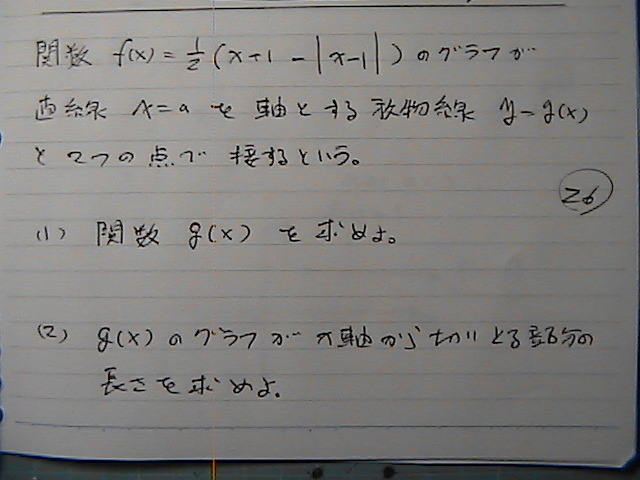 関数 f(x) = 1/2 (x+1 - |x-1|) のグラフが
直線 x=a を軸とする放物線 y=g(x)
と2つの点で接するという。
26
(1) 関数 g(x) を求めよ。
(2) g(x) のグラフがx軸から切りとる部分の
長さを求めよ。